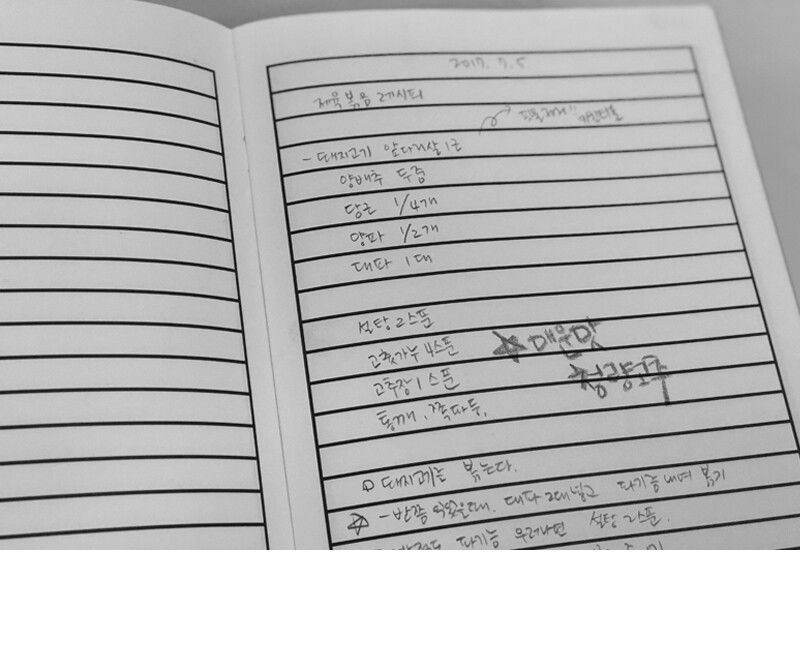 2017. 7. 5
제육볶음 레시피
- 돼지고기 앞다리살 1근
양배추 두줌
당근 1/4개
양파 1/2개
대파 1대
설탕 2스푼
고춧가루 4스푼 ☆ 매운맛
고추장 1스푼 청량고추
통깨, 쪽파 등.
① 돼지고기는 볶는다.
☆ - 반쯤 익었을때. 대파 2대 넣고 파기름 내며 볶기
파기름 우러나면 설탕 2스푼.